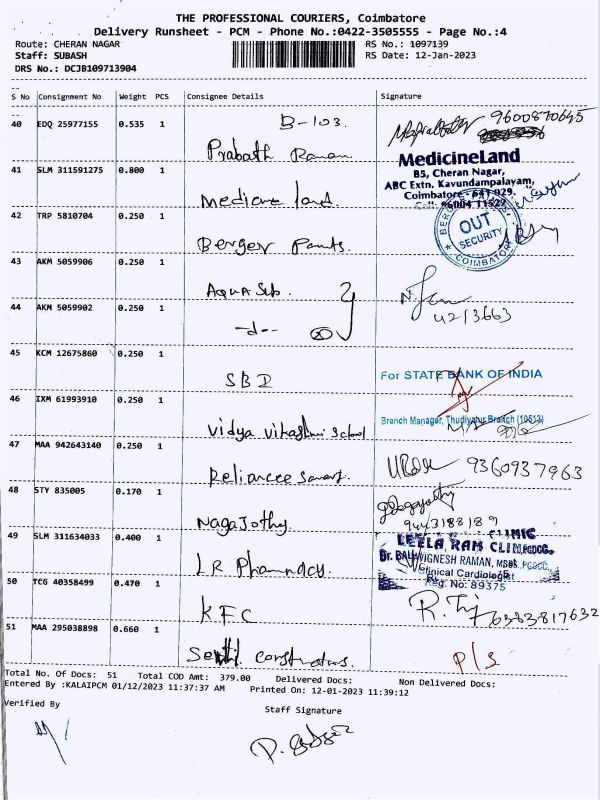 THE PROFESSIONAL COURIERS, Coimbatore
Delivery Runsheet - PCM - Phone No.:0422-3505555 - Page No.:4
Route: CHERAN NAGAR RS No.: 1097139
Staff: SUBASH RS Date: 12-Jan-2023
DRS No.: DCJB109713904
S No Consignment No Weight PCS Consignee Details Signature
40 EDQ 25977155 0.535 1 B-103. 9600870645
Prabath Raman
MedicineLand
41 SLM 311591275 0.800 1 B5, Cheran Nagar,
ABC Extn. Kavundampalayam,
Medicine land. Coimbatore - 641 029.
Cell: 96004 11522
42 TRP 5810704 0.250 1 OUT
SECURITY
COIMBATORE
Berger Paints.
43 AKM 5059906 0.250 1
Aqua Sub.
44 AKM 5059902 0.250 1 4213663
-do-
45 KCM 12675860 0.250 1
SBI For STATE BANK OF INDIA
46 IXM 61993910 0.250 1
Branch Manager, Thudiyalur Branch (10513)
Vidya Vikashini School
47 MAA 942643140 0.250 1
Reliance Smart. 9360937963
48 STY 835005 0.170 1
Naga Jothy 9443188189
49 SLM 311634033 0.400 1 CLINIC
LEELA RAM CLINIC
Dr. BALAVIGNESH RAMAN, MBBS, PGDCC,
LR Pharmacy. Clinical Cardiologist
Reg. No: 89375
50 TCG 40358499 0.470 1
KFC 6383817632
51 MAA 295038898 0.660 1
Senthil constructions. P/S
Total No. Of Docs: 51 Total COD Amt: 379.00 Delivered Docs: Non Delivered Docs:
Entered By :KALAIPCM 01/12/2023 11:37:37 AM Printed On: 12-01-2023 11:39:12
Verified By Staff Signature